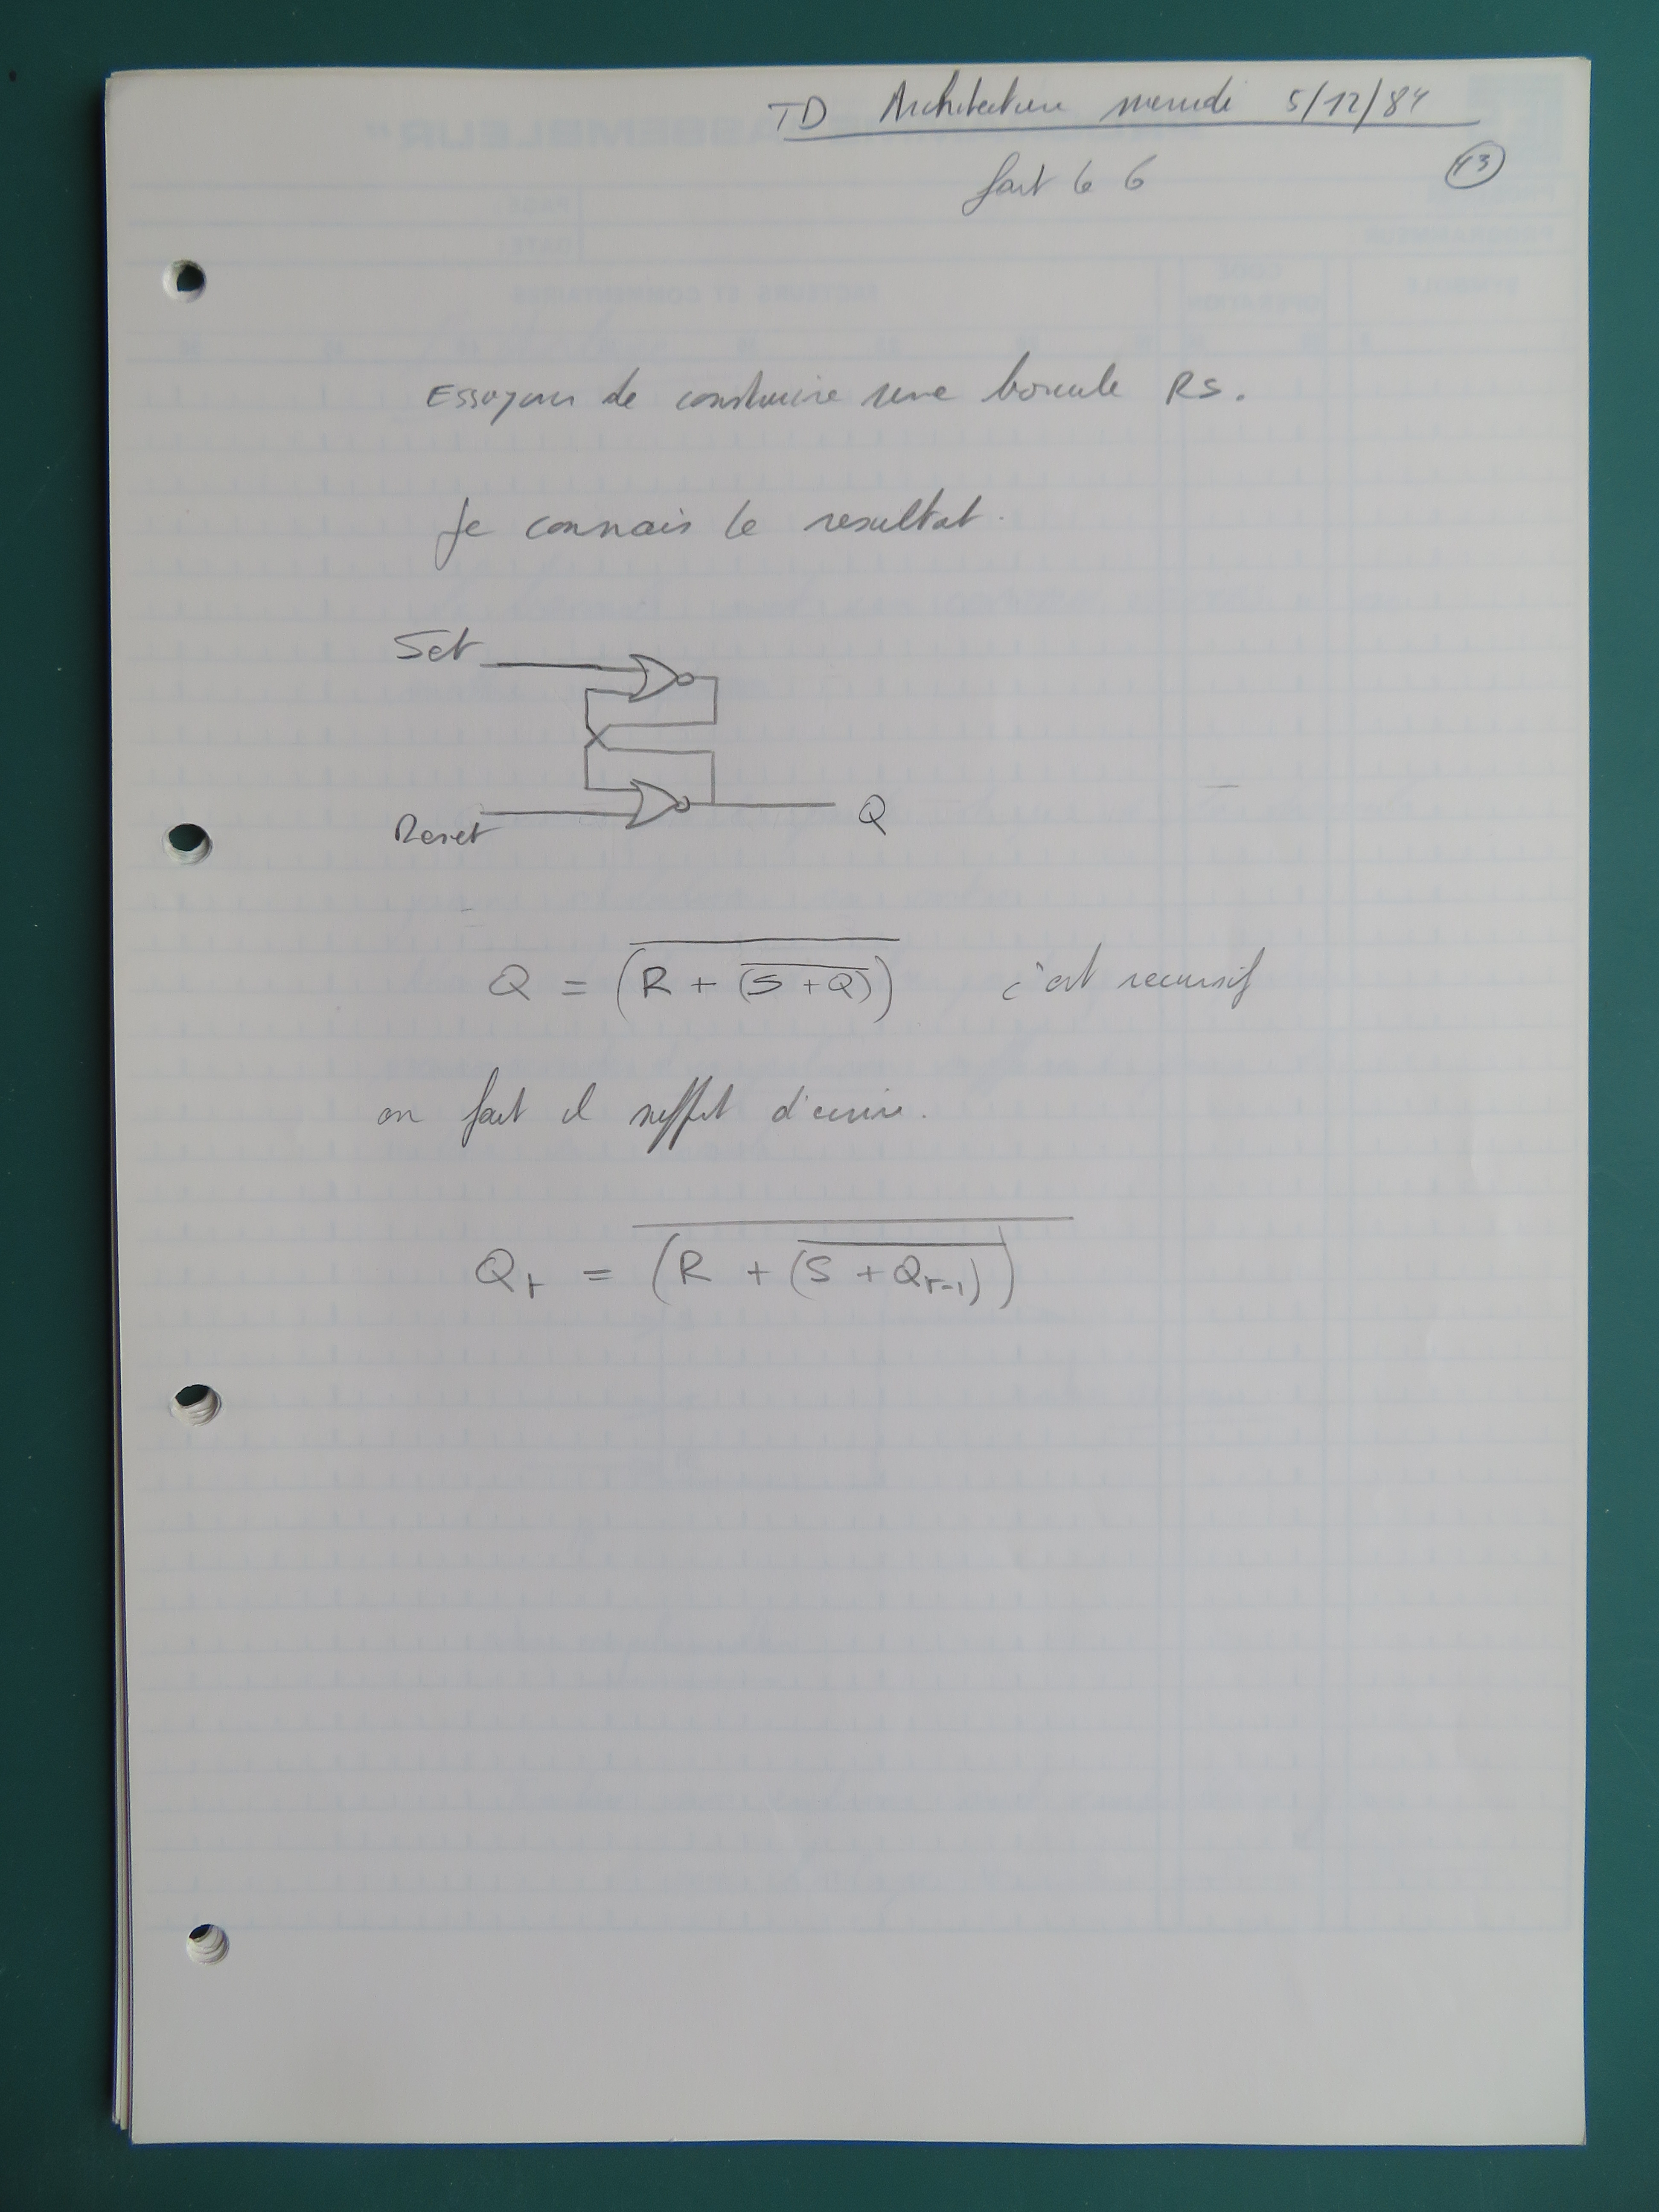 TD Architecture mercredi 5/12/84
fait le 6
13
Essayons de construire une bascule RS.
Je connais le resultat.
Set
Reset
Q
Q = \overline{(R + \overline{(S + Q)})} c'est recursif
en fait il suffit d'ecrire.
Q_t = \overline{(R + \overline{(S + Q_{t-1})})}